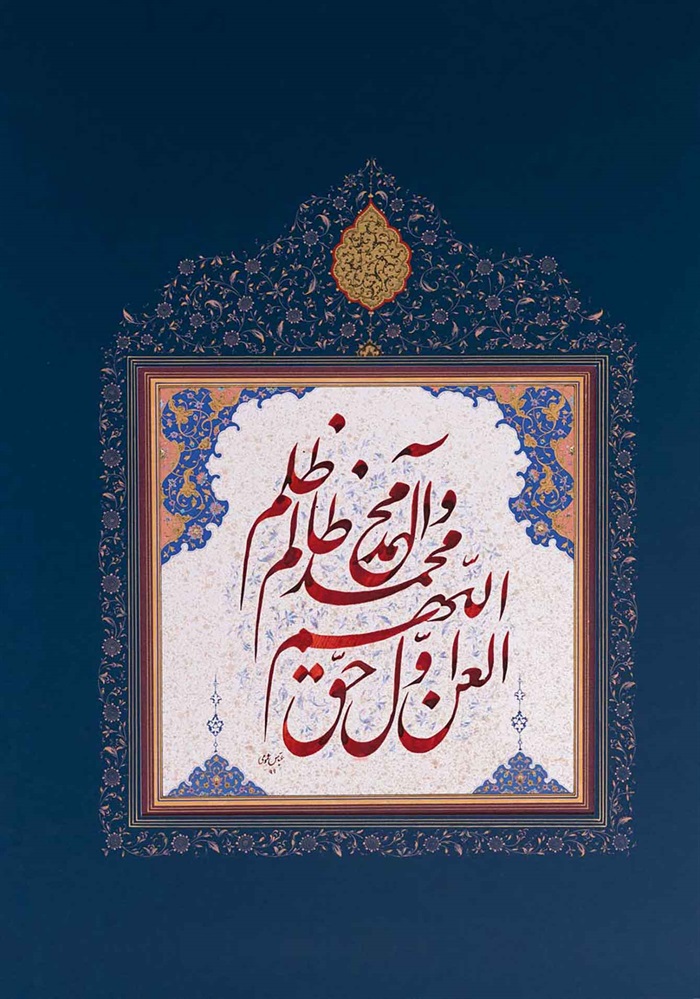 اللّهم العن اوّل
ظالم ظلم حقّ
محمد وآل محمد
عباس
۹۱